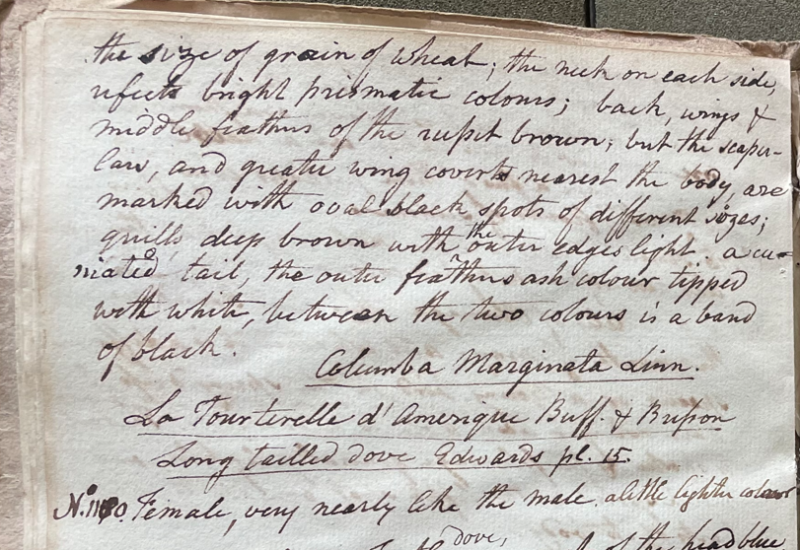 the size of grain of wheat; the neck on each side,
reflects bright prismatic colours; back, wings &
middle feathers of the rupst brown; but the scapu-
lars, and greater wing coverts nearest the body, are
marked with oval black spots of different sizes;
quills, deep brown with the outer edges light. a cu-
niated tail, the outer feathers ash colour tipped
with white, between the two colours is a band
of black.
Columba Marginata Linn.
La Tourterelle d'Amerique Buff. & Brisson
Long tailled dove Edwards pl. 15.
No. Female, very nearly like the male. a little lighter colour
dove,
of the head blue